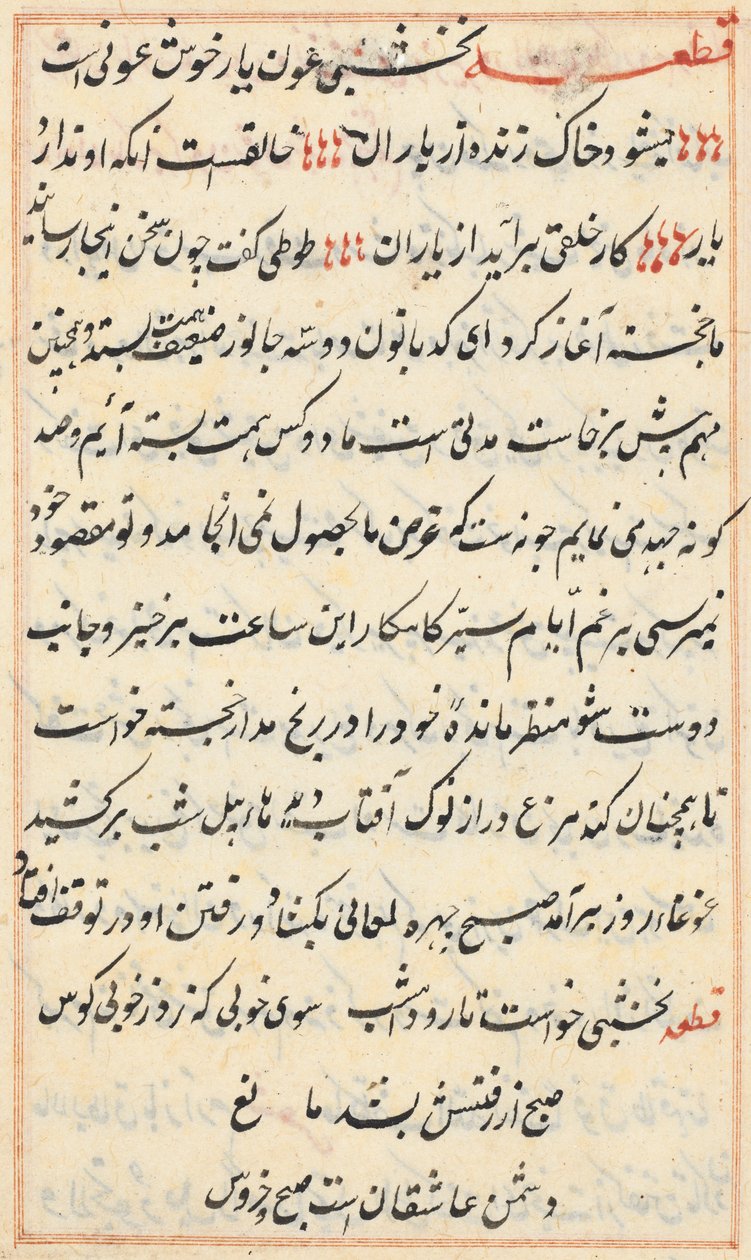 قطعه نخشبی عون یار خوش عونی است
میشو و خاک زنده از یاران خالقست آنکه او ندارد
یار کار خلقی برآید از یاران طوطی گفت چون سخن اینجا رسانید
ماخجسته آغاز کرد ای کدبانون دو سه جانور ضعیف همت بستند و همچنین
مهم پیش برخاست مدتی است ما دو کس همت بسته آئیم و صد
کونه جهد می نمایم چونه ست که غرض ما بحصول نمی انجامد و تو مقصود خود
نمیرسی برغم ایام ستیزکار این ساعت برخیز و جانب
دوست شو منتظر مانده خود را در رنج مدار خجسته خواست
تا همچنان کند مرغ دراز نوک آفتاب پیل شب برکشید
غوغاء روز برآمد صبح چهره لمعانی بکشاد و رفتن او در توقف افتاد
قطعه نخشبی خواست تا رود امشب سوی خوبی که زو خوبی کوس
صبح از رفتنش بشد مانع
دشمن عاشقان است صبح و خروس